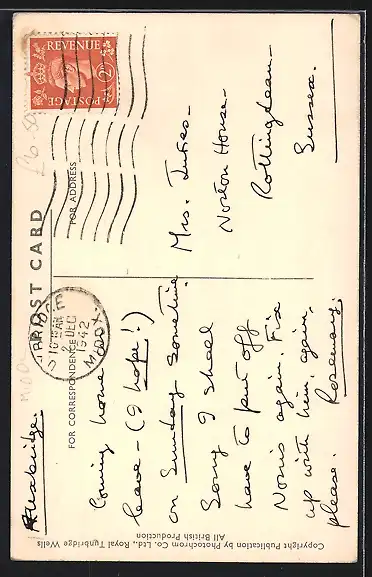 POST CARD
FOR CORRESPONDENCE
FOR ADDRESS
POSTAGE
REVENUE
2D
UXBRIDGE
10 15 AM
2 DEC
1942
MIDDX
£6.50
Uxbridge.
Coming home
leave - (I hope!)
on Sunday sometime
Sorry I shall
have to put off
Norris again. Fix
up with him again,
please. Rosemary.
Mrs.
Norton House -
Rottingdean -
Sussex.
Copyright Publication by Photochrom Co. Ltd., Royal Tunbridge Wells
All British Production